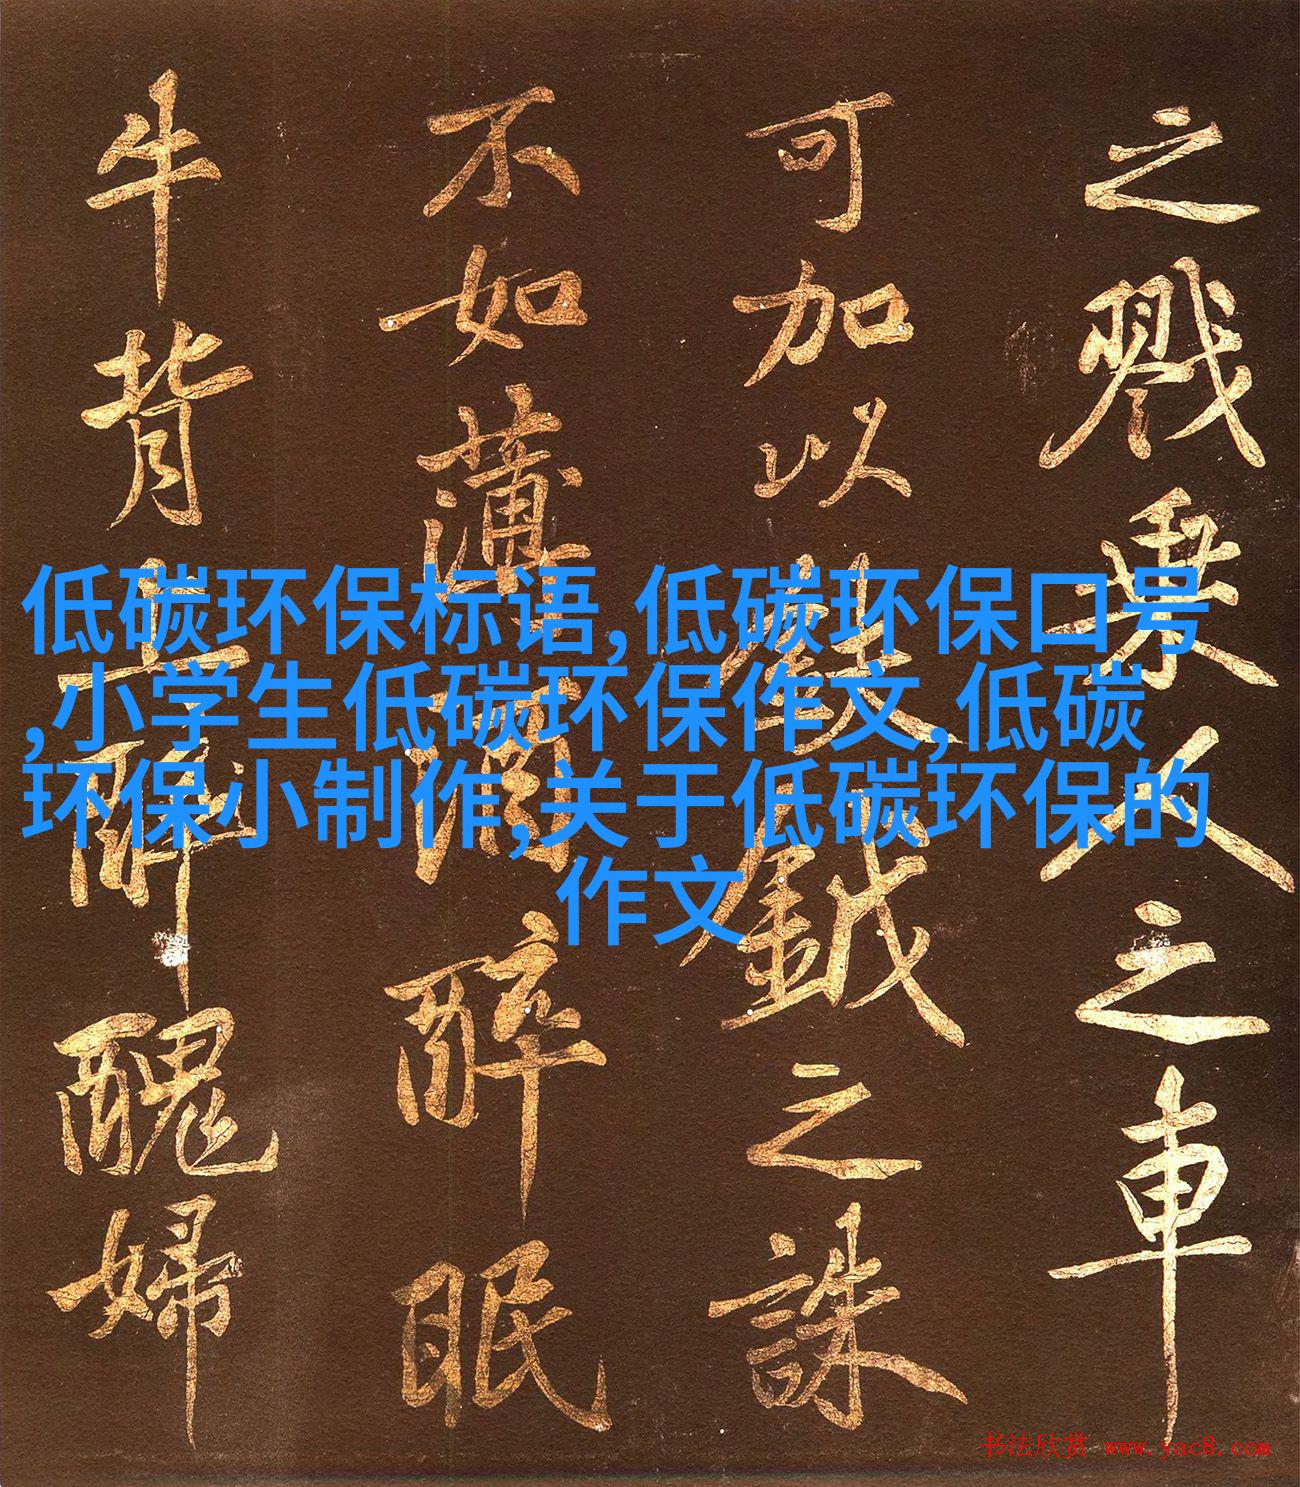 之戮乘人之車
可加以鈇鉞之誅
不如薄酒醉眠
牛背上醉醜婦
低碳环保标语,低碳环保口号
,小学生低碳环保作文,低碳
环保小制作,关于低碳环保的
作文
书法欣赏 www.yac8.com